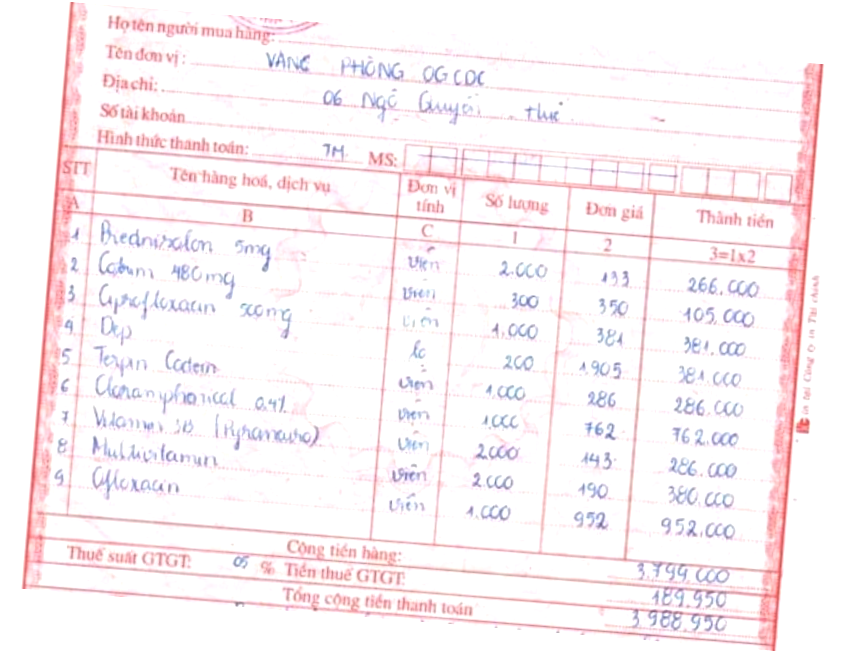 Họ tên người mua hàng:
Tên đơn vị: VĂNG PHÒNG OGCDC
Địa chỉ: 06 Ngô Quyền . Huế
Số tài khoản
Hình thức thanh toán: TM. MS:
STT Tên hàng hoá, dịch vụ Đơn vị tính Số lượng Đơn giá Thành tiền
A B C 1 2 3=1x2
1 Prednisolon 5mg viên 2.000 133 266.000
2 480mg viên 300 350 105.000
3 Ciprofloxacin 500mg viên 1.000 381 381.000
4 Dep lọ 200 1.905 381.000
5 Terpin Codein viên 1.000 286 286.000
6 Cloramphenical 0.4% viên 1.000 762 762.000
7 Vitamin viên 2000 143 286.000
8 Multivitamin viên 2.000 190 380.000
9 Ofloxacin viên 1.000 952 952.000
Cộng tiền hàng: 3.799.000
Thuế suất GTGT: 05 % Tiền thuế GTGT: 189.950
Tổng cộng tiền thanh toán 3.988.950